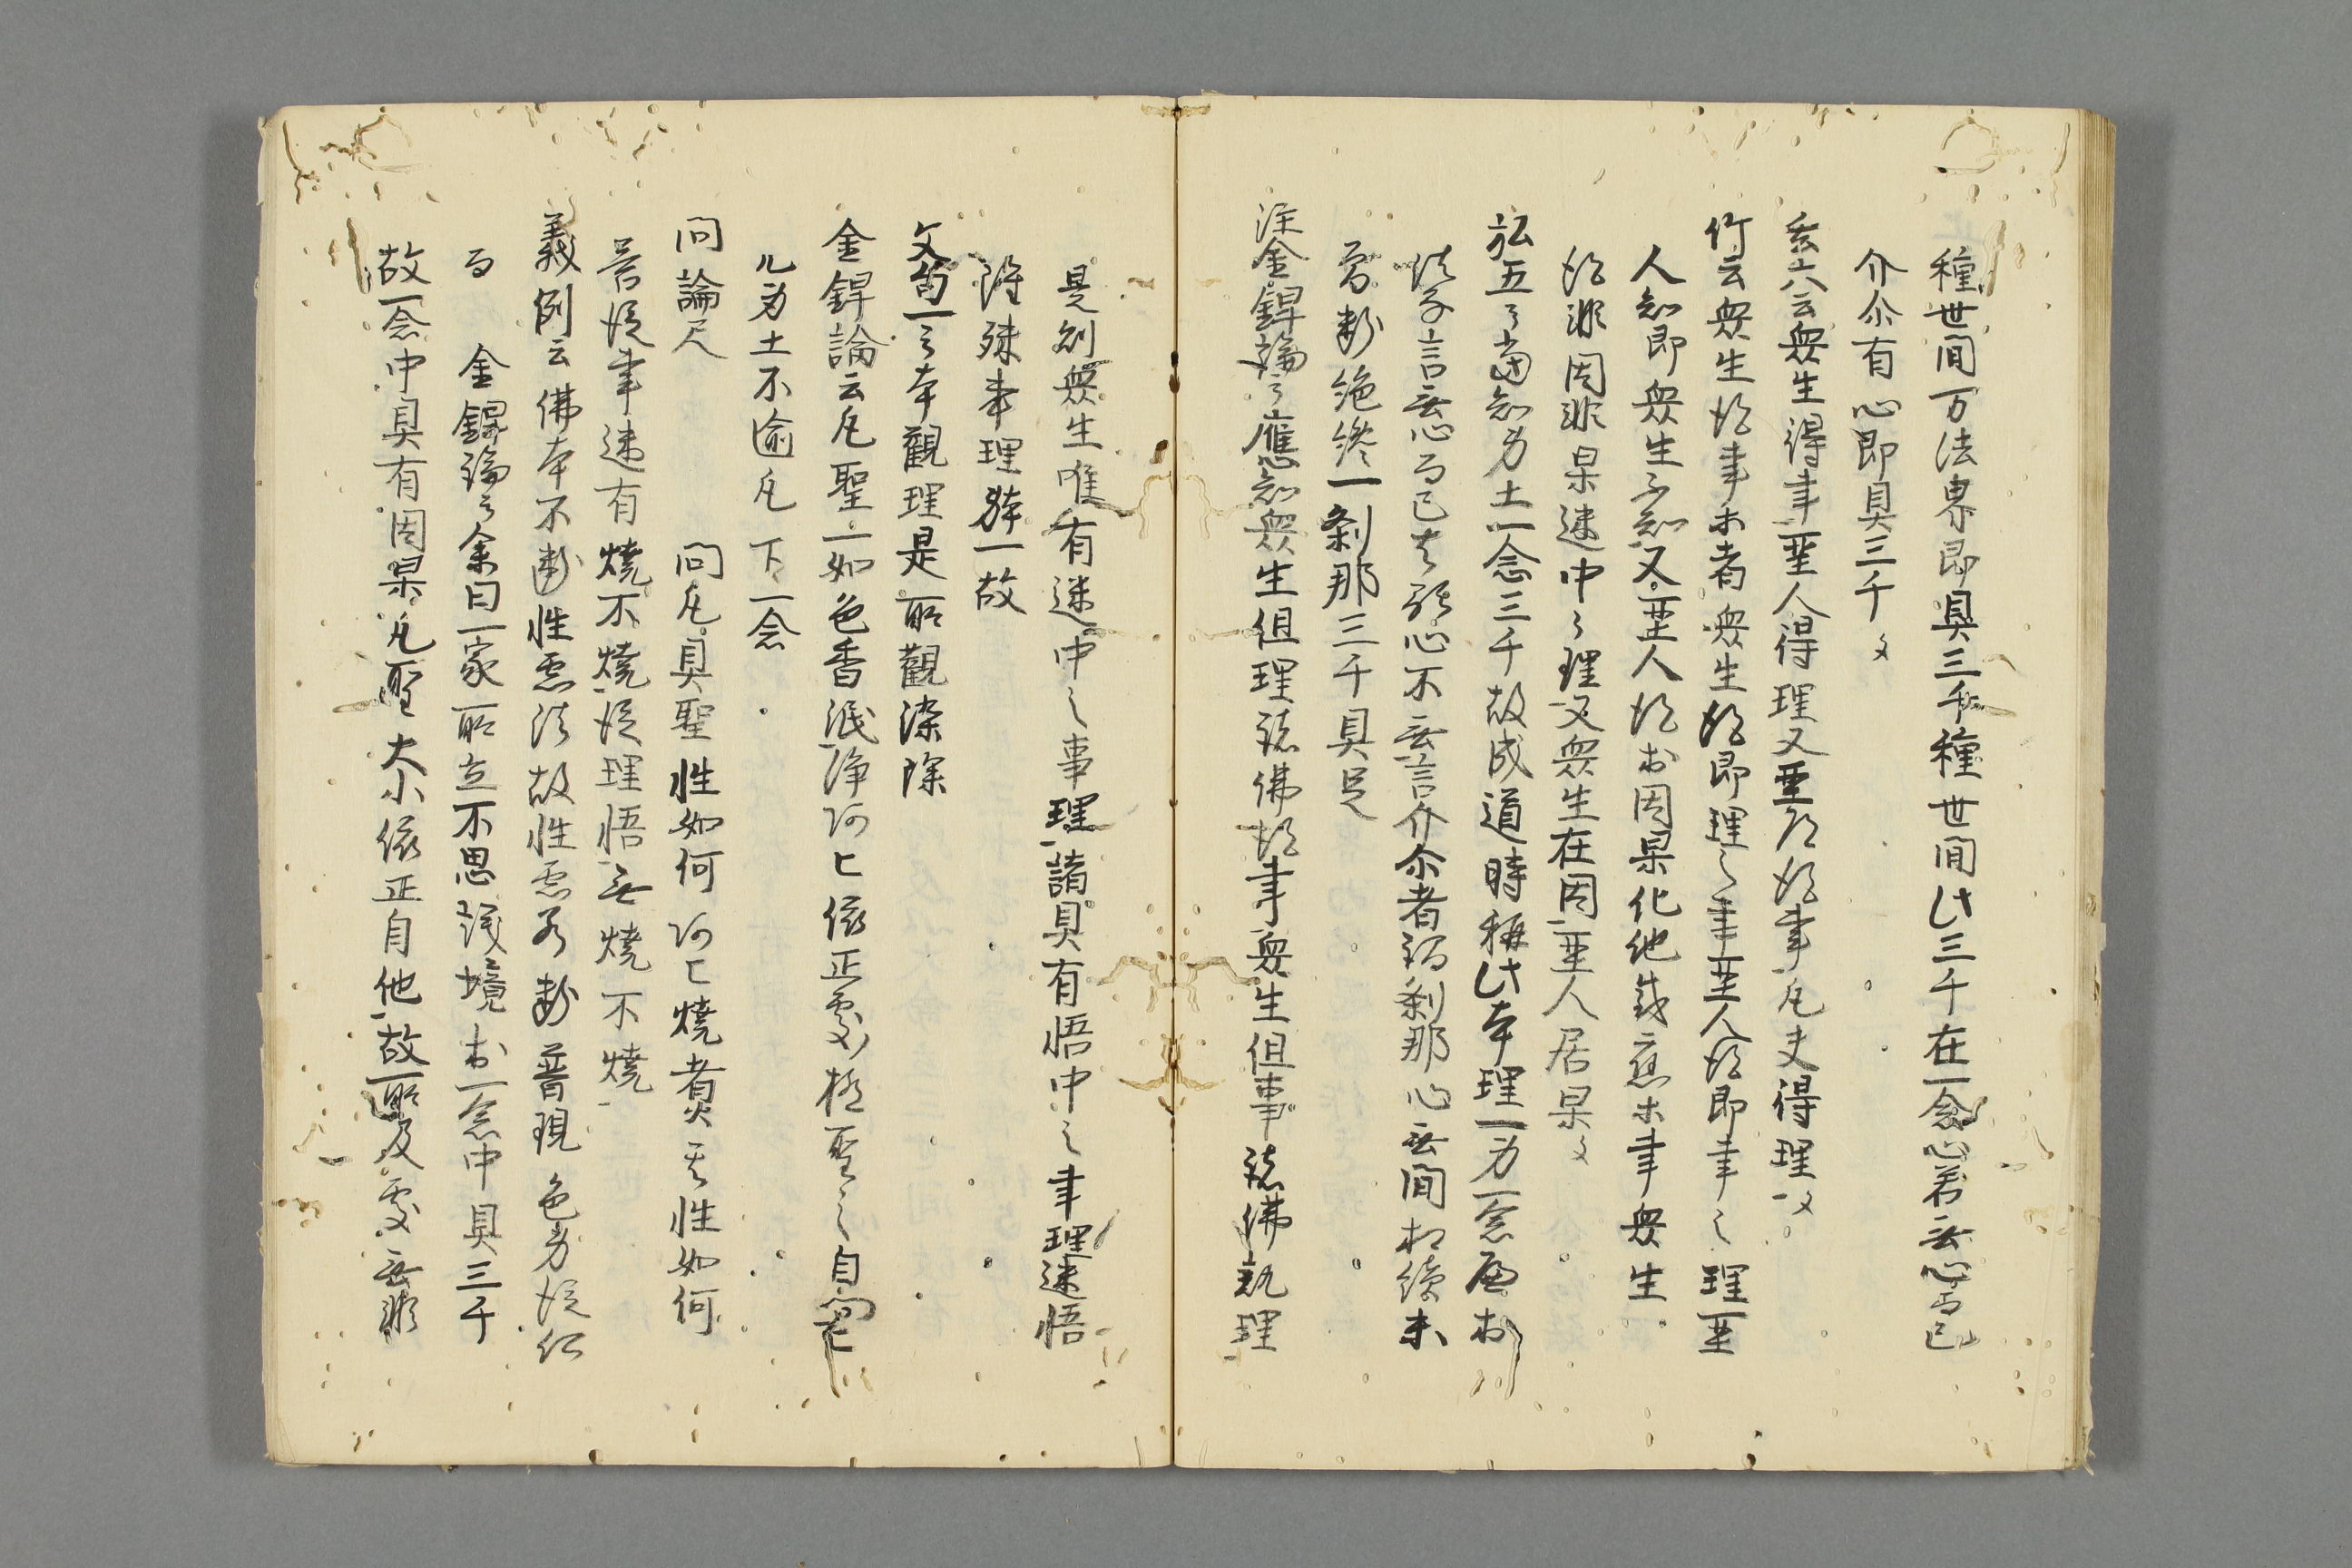 種世間万法界即具三千種世間此三千在一念心若無心而已
介尓有心即具三千文
玄六云衆生得事聖人得理又聖即得事凡夫得理文
竹云衆生得事等者衆生得即理之事聖人得即事之理聖
人知即衆生不知又聖人得於因果化他感應等事衆生
得非因非果迷中之理又衆生在因聖人居果文
弘五云当知身土一念三千故成道時称此本理一身一念遍於
法界言無心而已者顕心不無言介尓者謂刹那心無間相續未
曽断絶終一刹那三千具足
注金錍論云應知衆生但理諸佛得事衆生但事諸佛証理
是則衆生唯有迷中之事理諸具有悟中之事理迷悟
雖殊事理躰一故
文句一云本觀理是所觀染除
金錍論云凡聖一如色香泯浄阿匕依正處極聖之自心
凡身土不逾凡下一念
問論尺　問凡具聖性如何阿匕燒煑其性如何
答從事迷有燒不燒從理悟無燒不燒
義例云佛本不断性悪法故性悪若断普現色身從何
而　金錍論云余曰一家所立不思議境於一念中具三千
故一念中具有因果凡聖大小依正自他故所及處無非